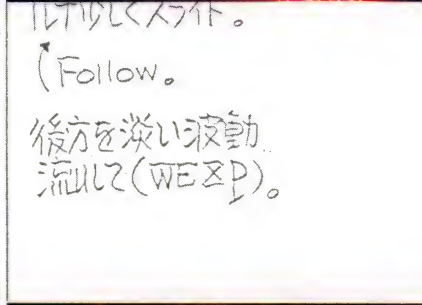 少しくスライド。
(Follow。
後方を淡い波動
流して(WEXP)。